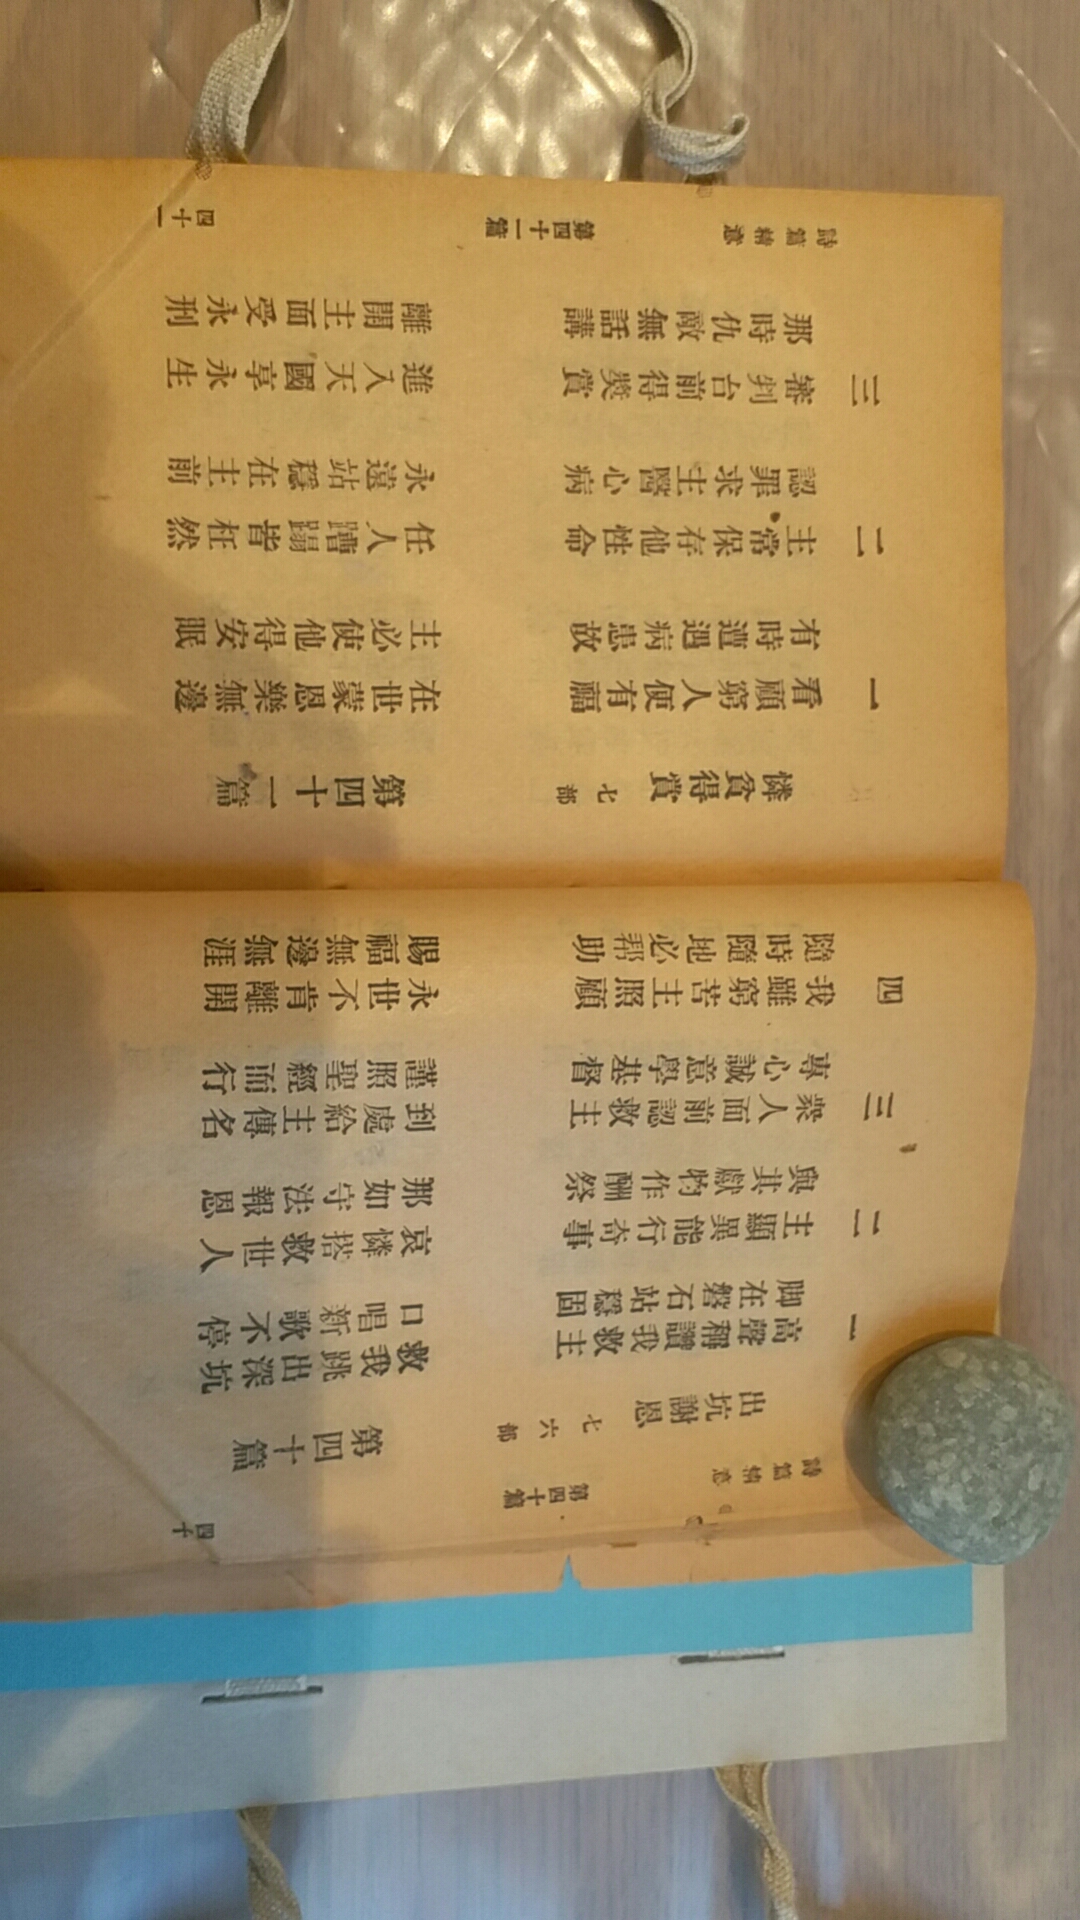 詩篇精意 第四十篇 四十
出坑謝恩 七六部 第四十篇
一 高聲稱讚我救主 救我跳出深坑
脚在磐石站穩固 口唱新歌不停
二 主顯異能行奇事 哀憐搭救世人
與其獻物作酬祭 那如守法報恩
三 衆人面前認救主 到處給主傳名
專心誠意學基督 謹照聖經而行
四 我雖窮苦主照顧 永世不肯離開
隨時隨地必帮助 賜福無邊無涯
憐貧得賞 七部 第四十一篇
一 看顧窮人便有福 在世蒙恩樂無邊
有時遭遇病患故 主必使他得安眠
二 主常保存他性命 任人蹧蹋皆枉然
認罪求主醫心病 永遠站穩在主前
三 審判台前得獎賞 進入天國享永生
那時仇敵無話講 離開主面受永刑
詩篇精意 第四十一篇 四十一